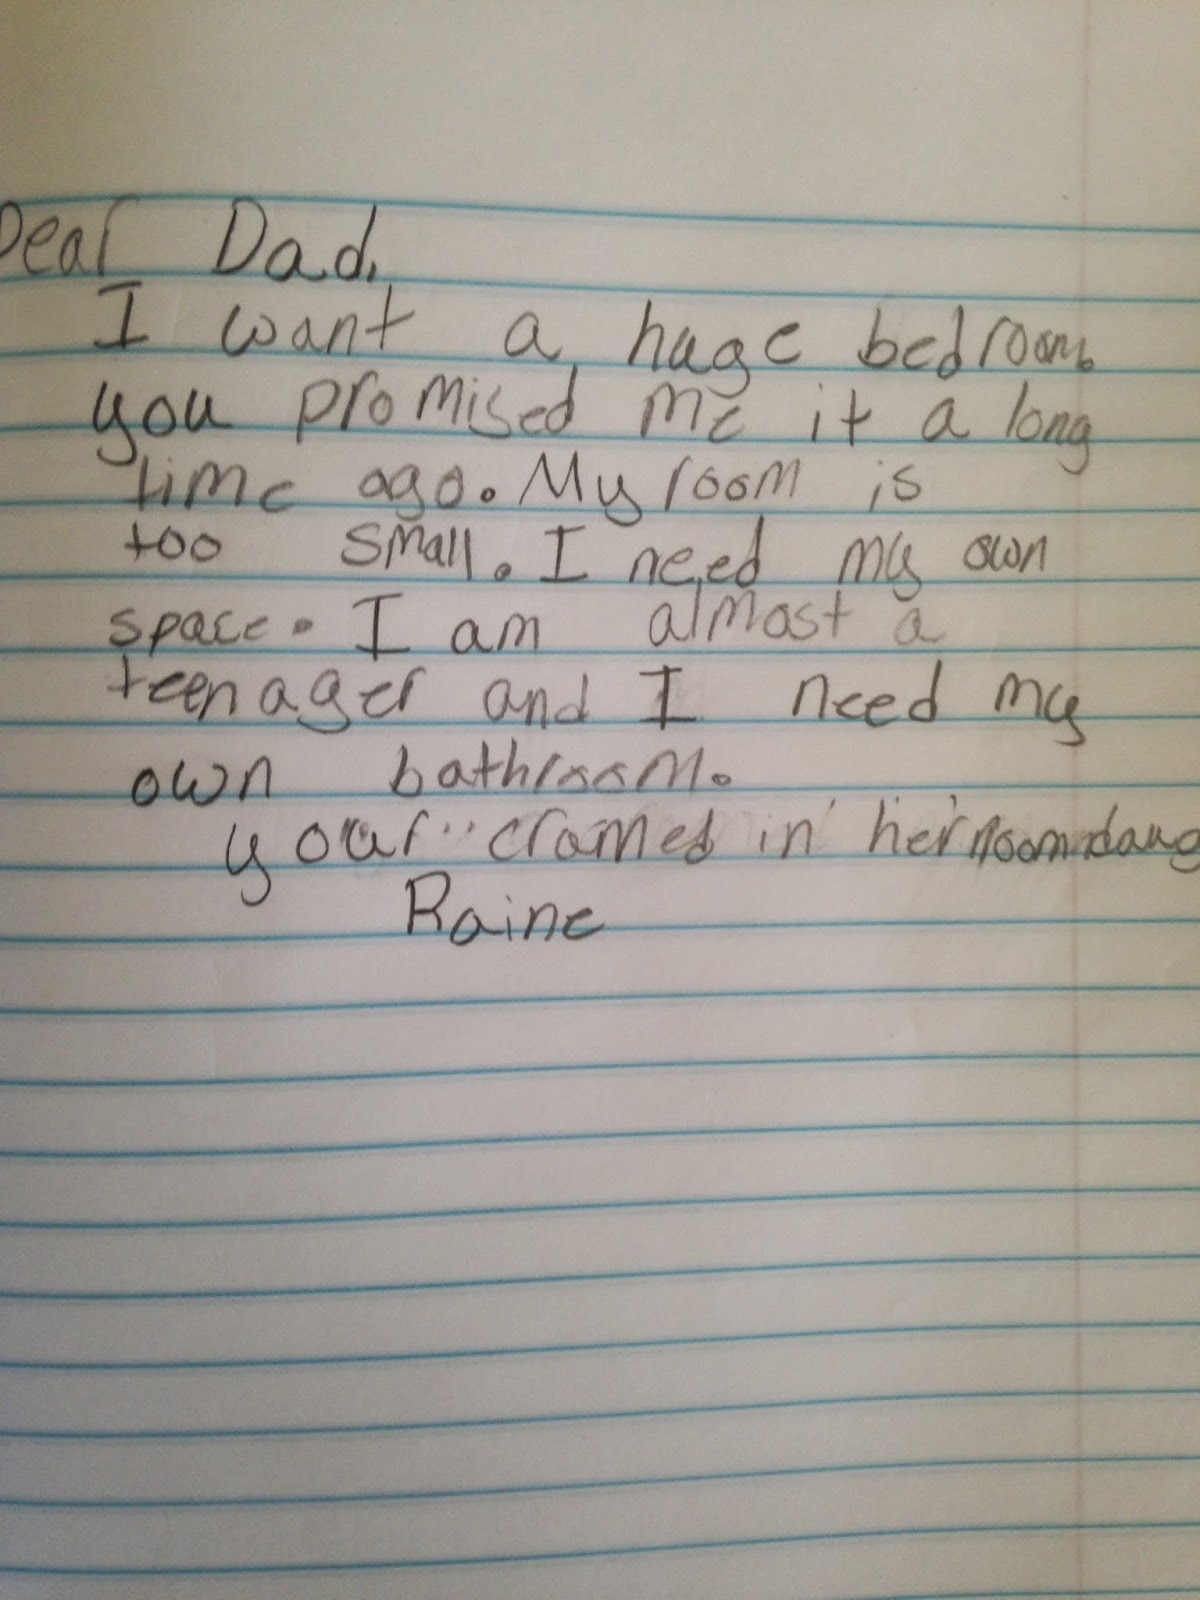 Dear Dad,
I want a huge bedroom.
you promised me it a long
time ago. My room is
too small. I need my own
space. I am almost a
teenager and I need my
own bathroom.
your "cramed in her room daug
Raine